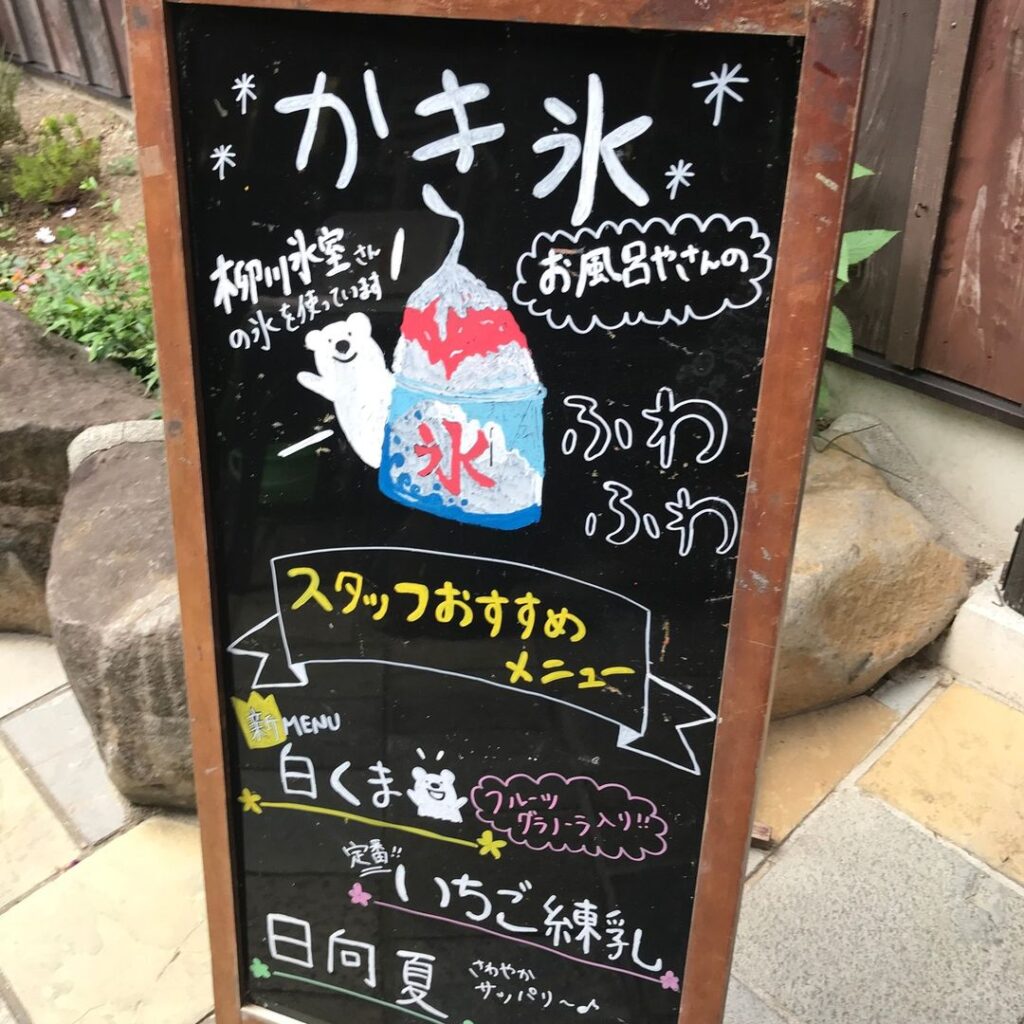 かき氷
柳川氷室さん
の氷を使っています
お風呂やさんの
ふわ
ふわ
氷
スタッフおすすめ
メニュー
新MENU
白くま
フルーツ
グラノーラ入り!!
定番!!
いちご練乳
日向夏
さわやか
サッパリ〜♪